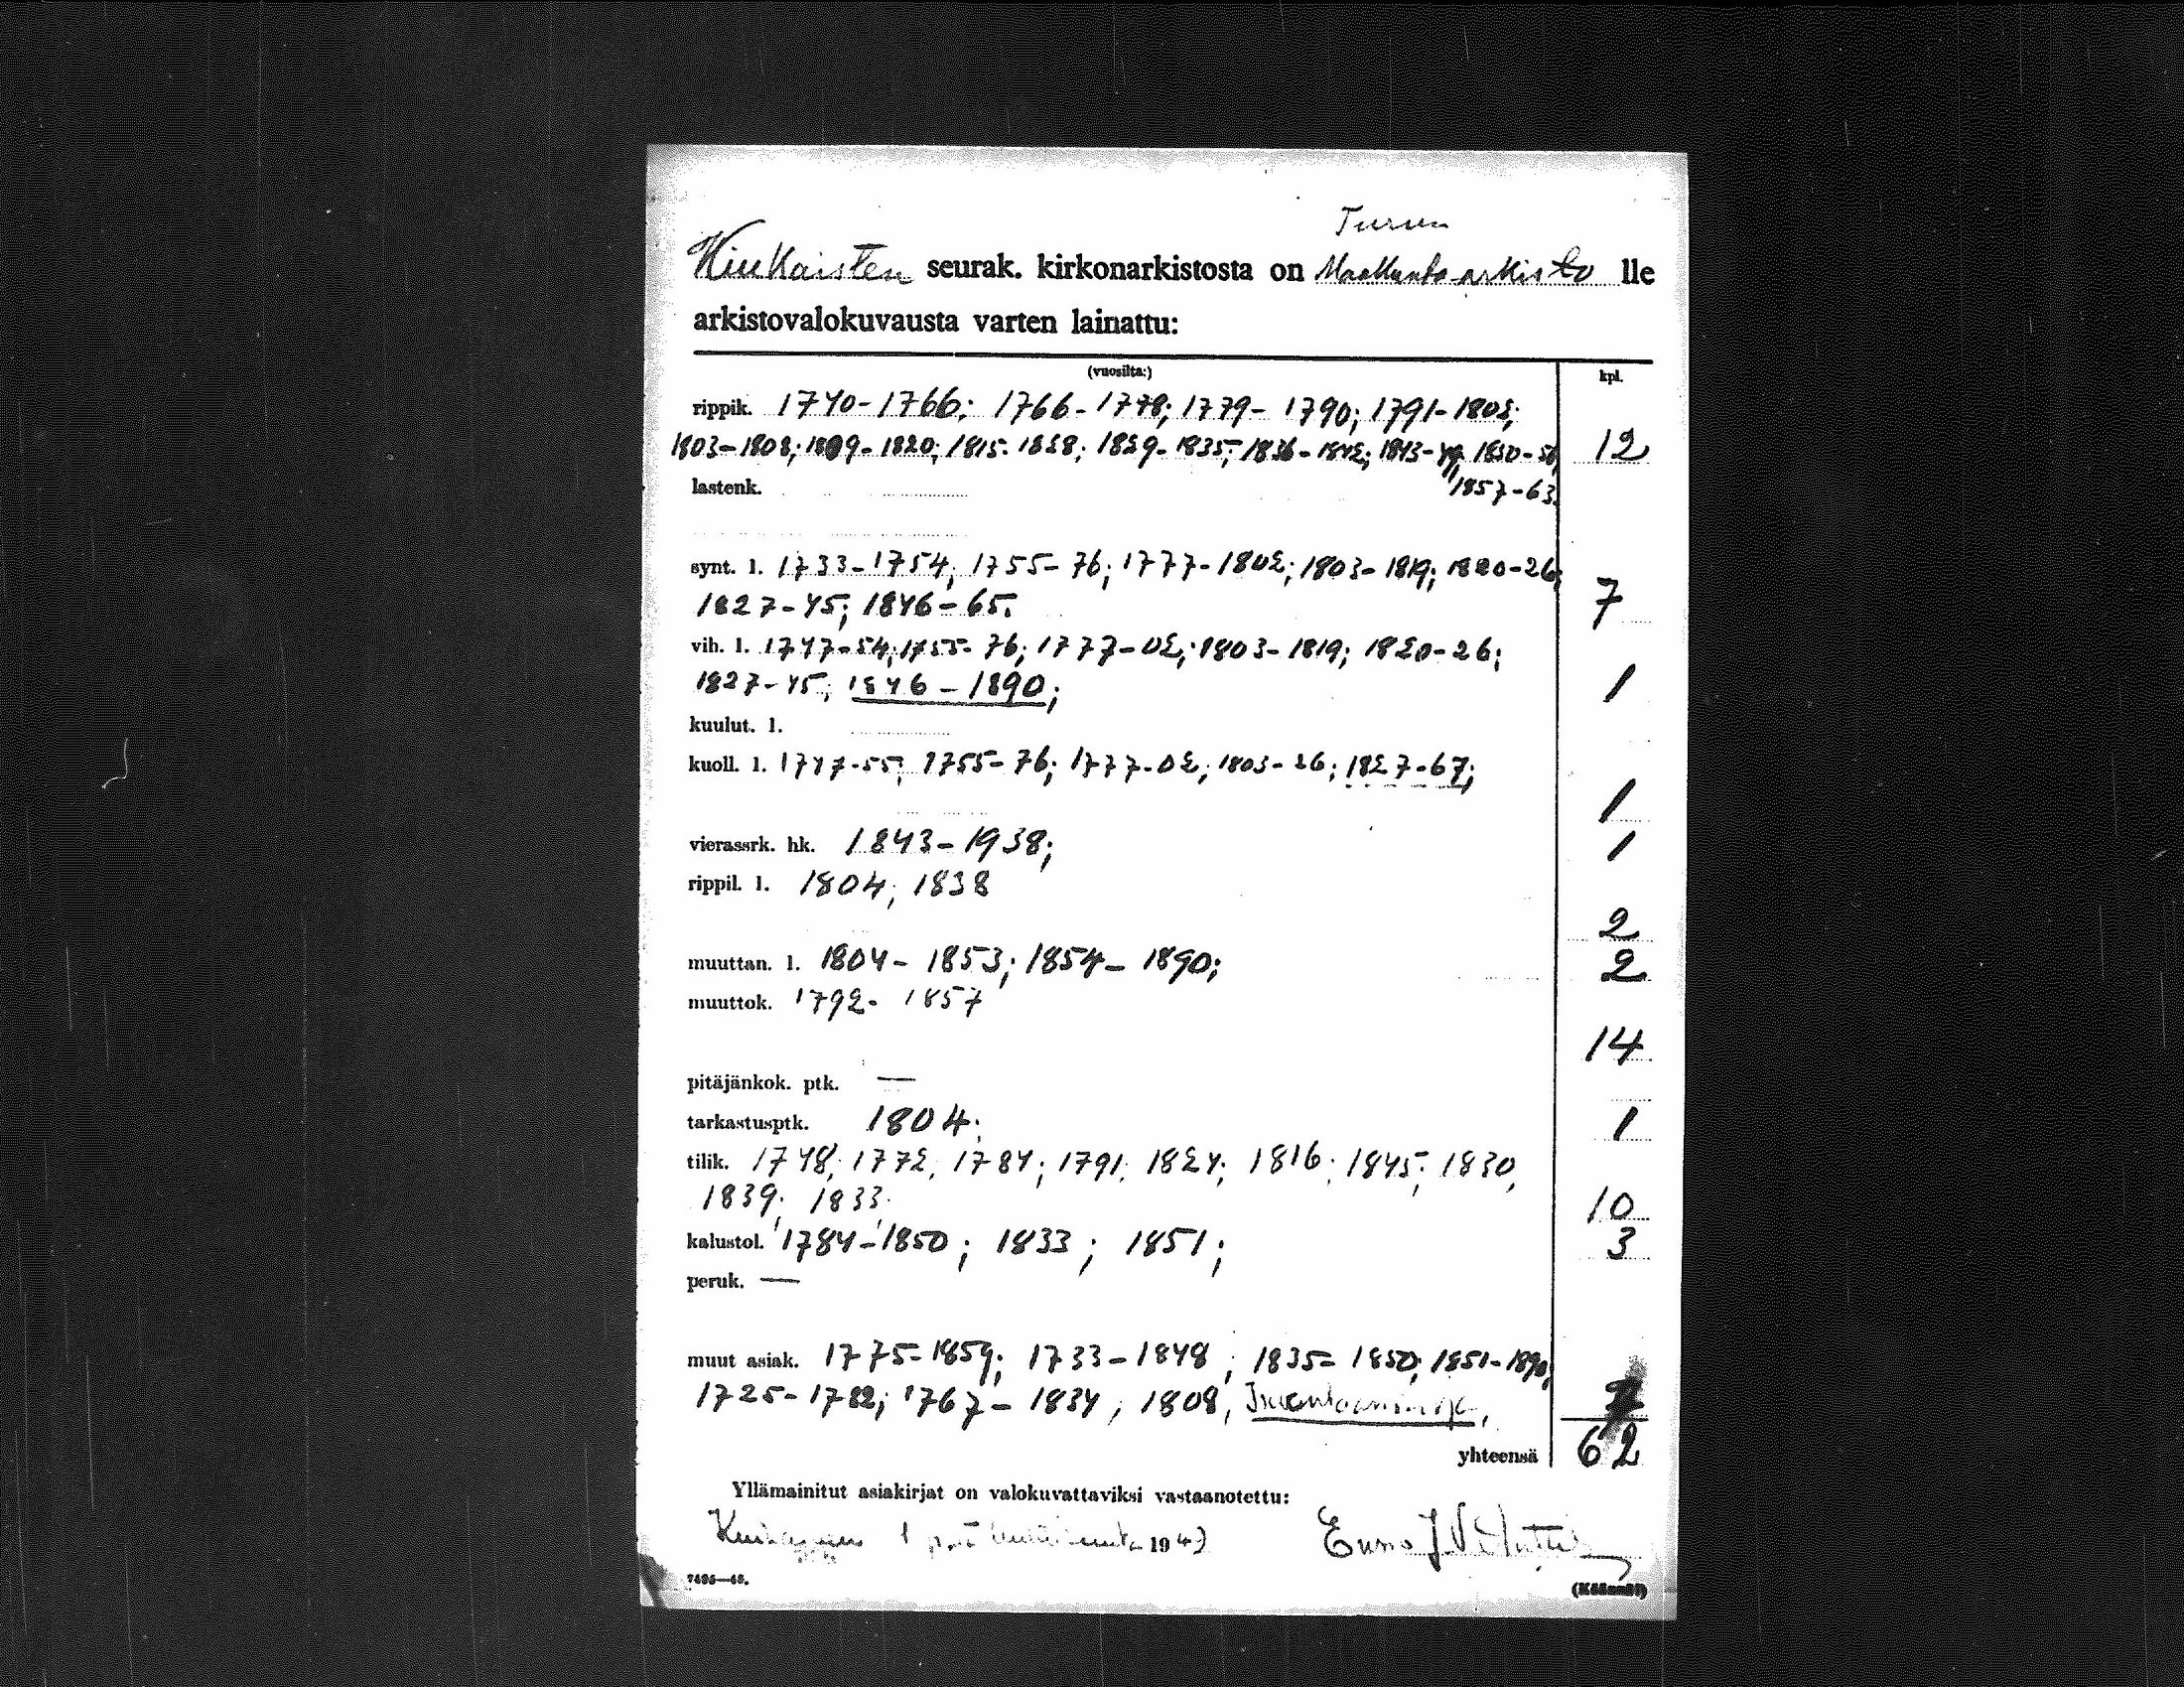 Turun
Kiukaisten seurak. kirkonarkistosta on Maakunta-arkisto lle
arkistovalokuvausta varten lainattu:
(vuosilta:) kpl.
rippik. 1740-1766; 1766-1778; 1779-1790; 1791-1802;
1803-1808; 1809-1820; 1815-1828; 1829-1835; 1836-1842; 1843-49; 1850-56; 12
lastenk. 1857-63.
synt. l. 1733-1754; 1755-76; 1777-1802; 1803-1819; 1820-26;
1827-45; 1846-65. 7
vih. l. 1747-54; 1755-76; 1777-02; 1803-1819; 1820-26;
1827-45; 1846-1890; 1
kuulut. l.
kuoll. l. 1747-55; 1755-76; 1777-02; 1803-26; 1827-67;
1
vierassrk. hk. 1843-1938; 1
rippil. l. 1804; 1838
2
muuttan. l. 1804-1853; 1854-1890; 2
muuttok. 1792-1857
14
pitäjänkok. ptk. —
tarkastusptk. 1804; 1
tilik. 1748; 1772; 1784; 1791; 1824; 1816; 1845; 1830,
1839; 1833. 10
kalustol. 1784-1850; 1833; 1851; 3
peruk. —
muut asiak. 1775-1859; 1733-1848; 1835-1850; 1851-1890;
1725-1782; 1767-1834; 1808, 7
yhteensä 62
Yllämainitut asiakirjat on valokuvattaviksi vastaanotettu:
1 p:nä 194
(Käännä!)